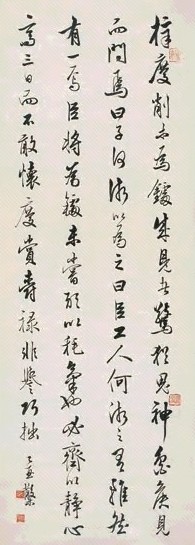 梓慶削木為鐻成見者驚猶鬼神魯侯見
而問焉曰子何術以為之曰臣工人何術之有雖然
有一焉臣將為鐻未嘗敢以耗氣也必齊以靜心
齊三日而不敢懷慶賞爵祿非譽巧拙